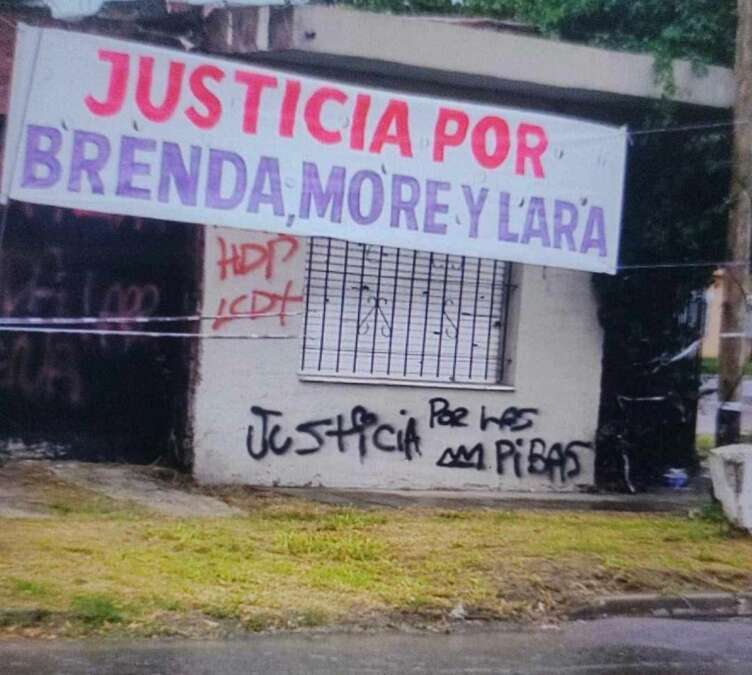 JUSTICIA POR
BRENDA, MORE Y LARA
HDP
LCDT
JUSTICIA POR LAS
PIBAS